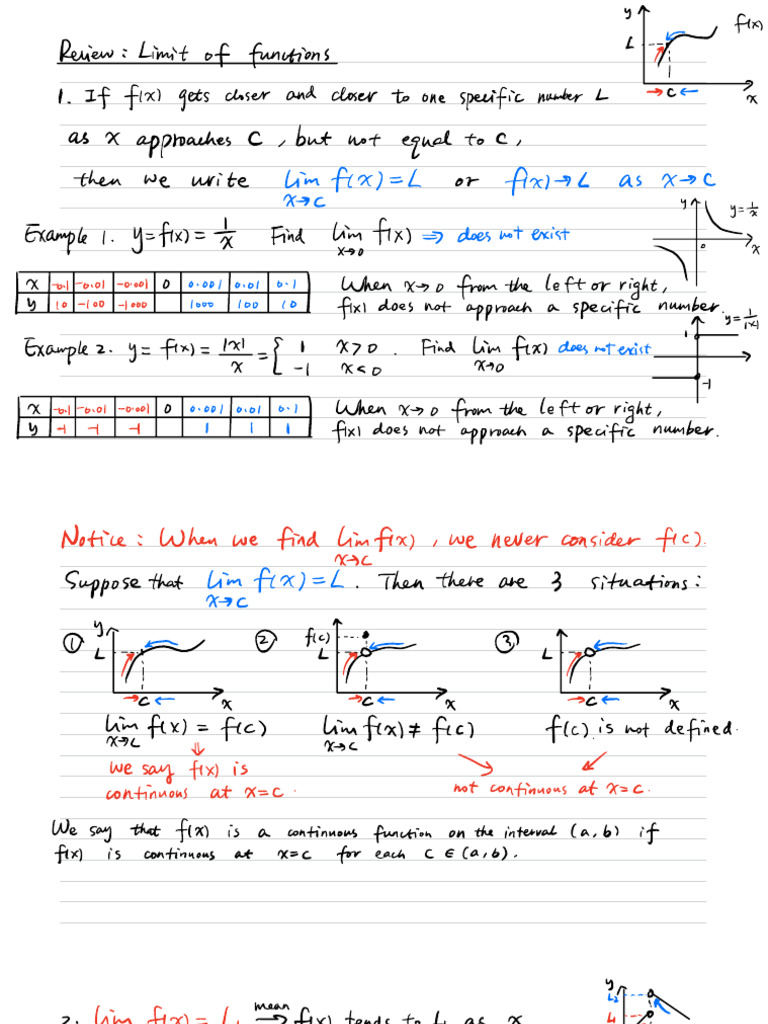 Review: Limit of functions
y
f(x)
L
C
x
1. If f(x) gets closer and closer to one specific number L
as x approaches C, but not equal to C,
then we write lim f(x)=L or f(x)→L as x→C
x→C
Example 1. y=f(x)= 1/x Find lim f(x) ⇒ does not exist
x→0
y
y=1/x
0
x
x -0.1 -0.01 -0.001 0 0.001 0.01 0.1
y 10 -100 -1000 1000 100 10
When x→0 from the left or right,
f(x) does not approach a specific number.
Example 2. y= f(x)= |x|/x = { 1 x>0 . Find lim f(x) does not exist
-1 x<0 x→0
y=1/|x|
1
-1
x -0.1 -0.01 -0.001 0 0.001 0.01 0.1
y -1 -1 -1 1 1 1
When x→0 from the left or right,
f(x) does not approach a specific number.
Notice: When we find lim f(x), we never consider f(c).
x→C
Suppose that lim f(x)=L. Then there are 3 situations:
x→C
① y L C x
② f(c) L C x
③ L C x
lim f(x) = f(c) lim f(x) ≠ f(c) f(c) is not defined.
x→C x→C
we say f(x) is
continuous at x=c.
not continuous at x=c.
We say that f(x) is a continuous function on the interval (a,b) if
f(x) is continuous at x=c for each C∈(a,b).
y
L2
L1
2. lim f(x) = L1 mean → f(x) tends to L1 as x